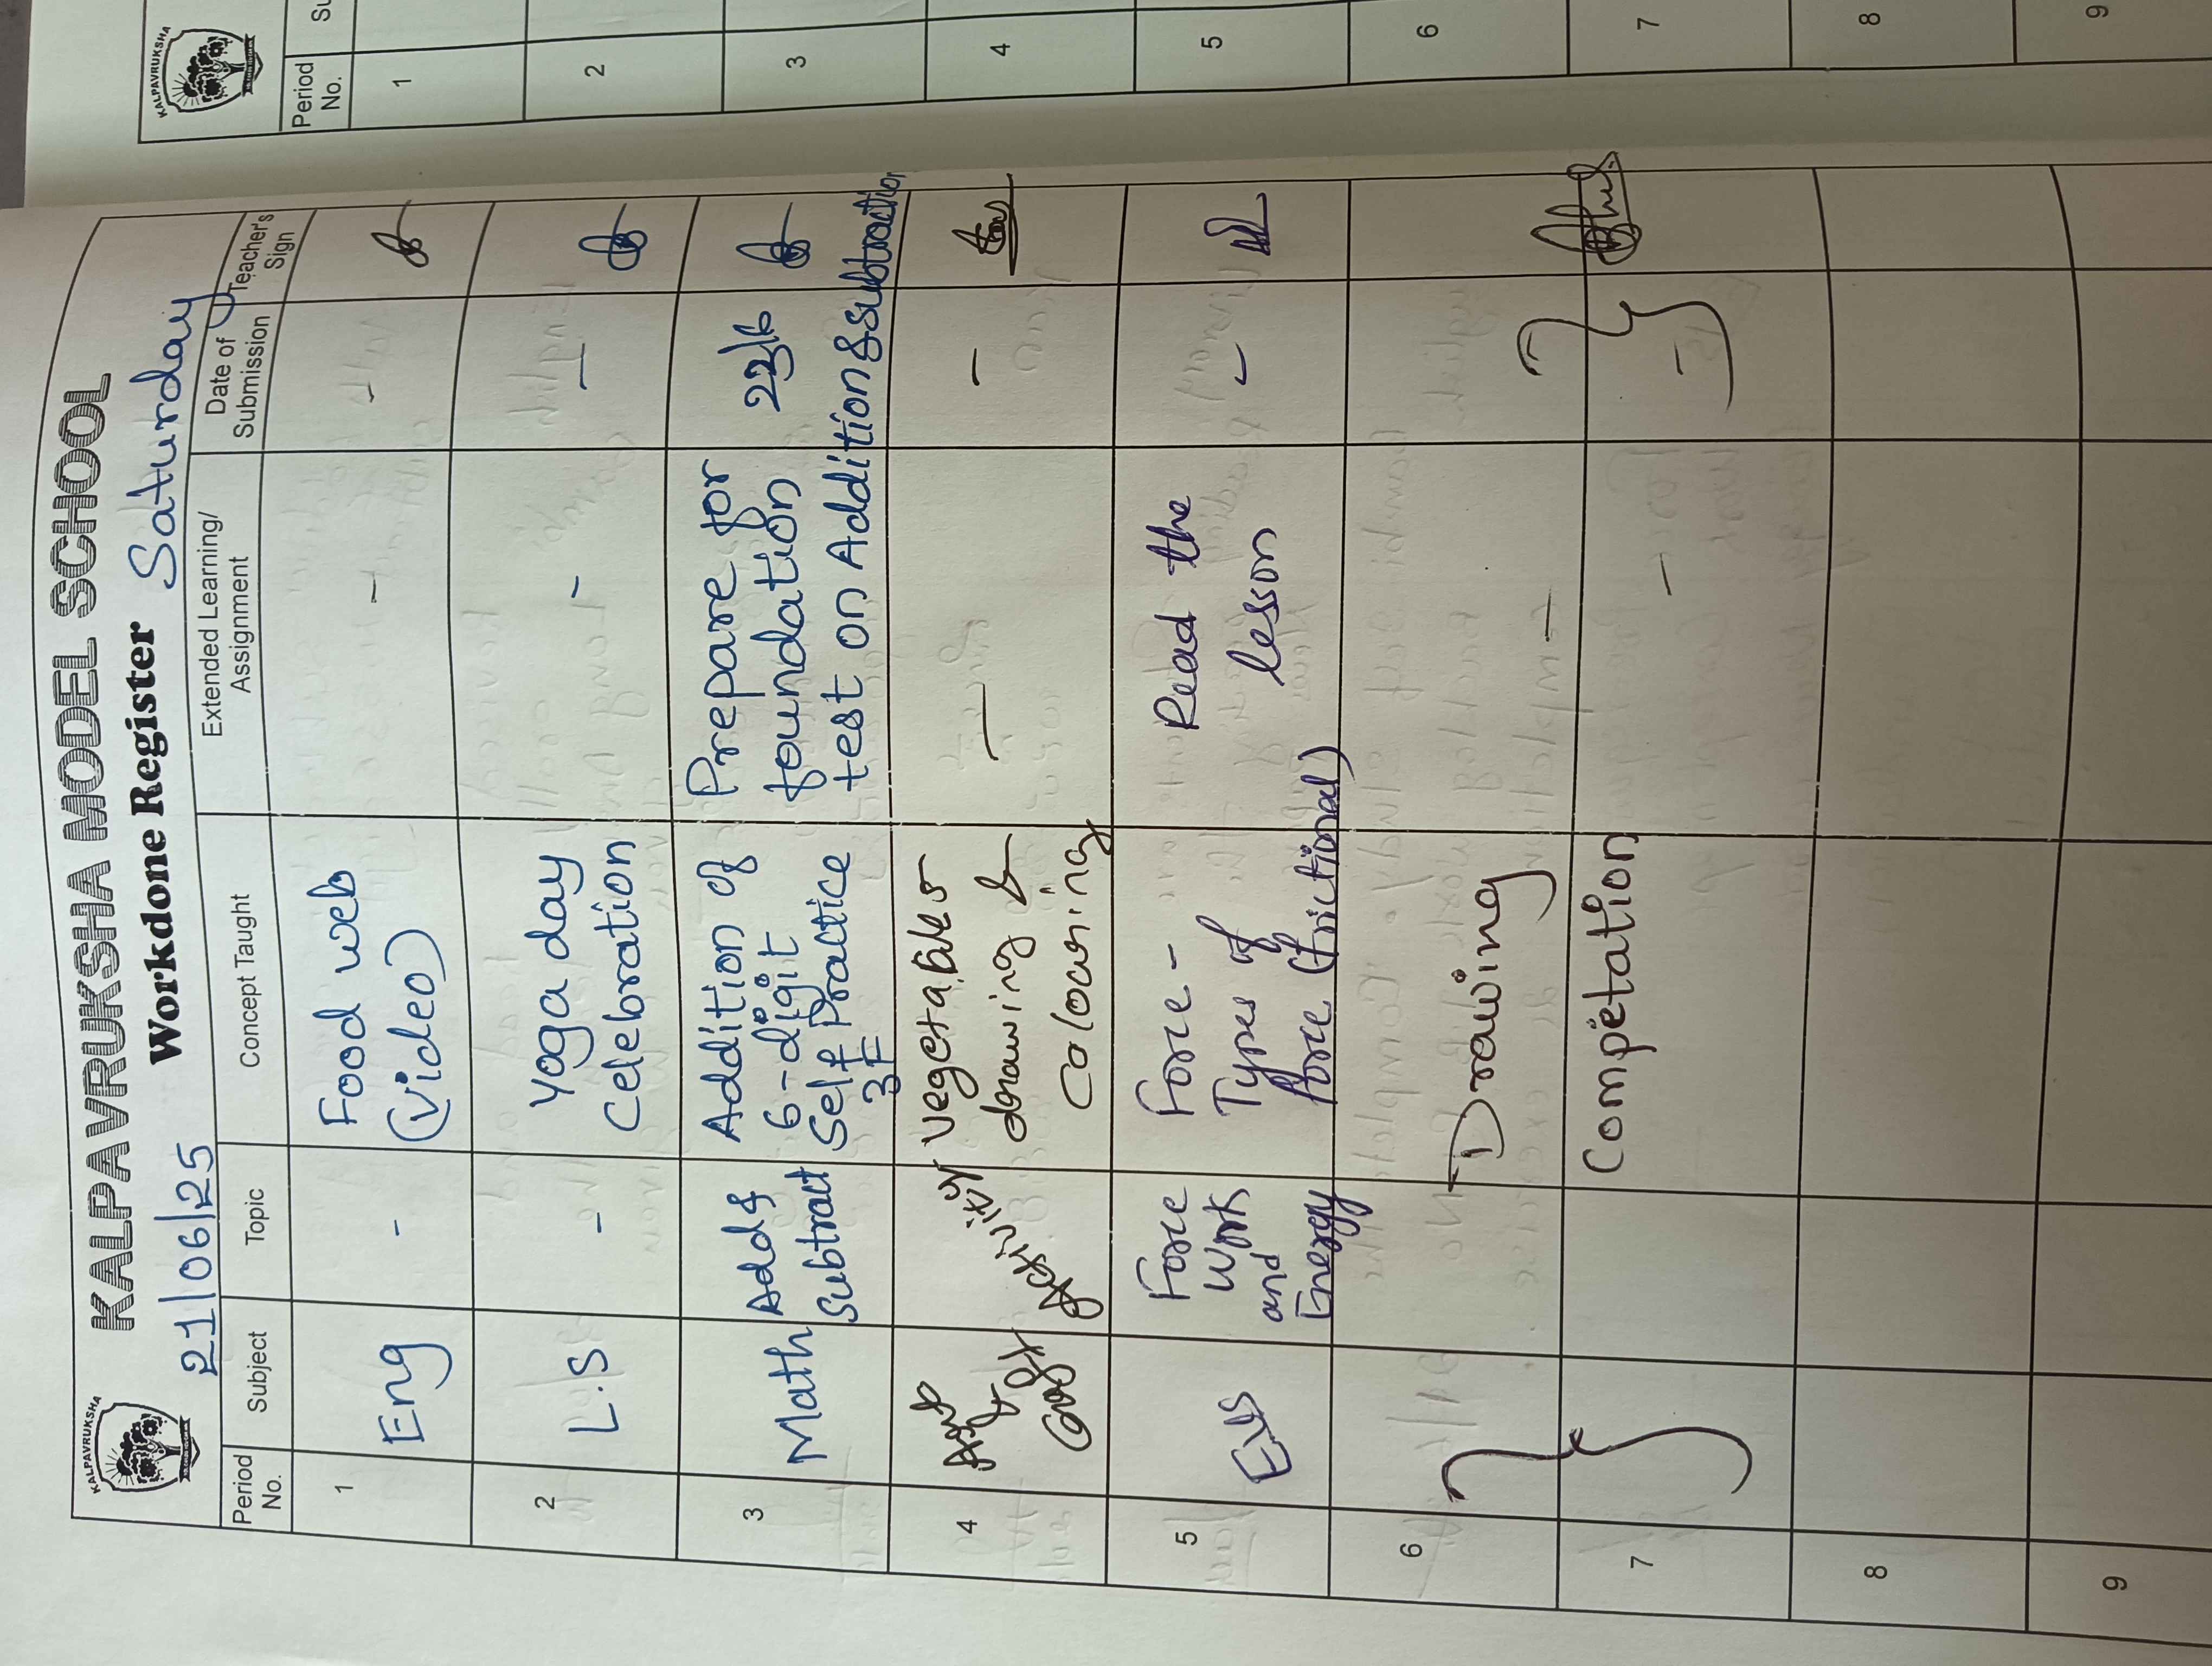 KALPAVRUKSHA
KALPAVRUKSHA MODEL SCHOOL
21/06/25 Workdone Register Saturday
Period No. Subject Topic Concept Taught Extended Learning/ Assignment Date of Submission Teacher's Sign
1 Eng - Food web - -
(video)
2 L.S - Yoga day - -
celebration
3 Math Add & Addition of Prepare for 23/6
Subtract 6-digit foundation
Self Practice test on Addition & subtraction
3F
4 Activity vegetables - -
drawing &
colouring
5 EVS Force Force - Read the -
Work Types of lesson
and force (frictional)
Energy
6 Drawing -
7 Competation - -
8
9
KALPAVRUKSHA
Period No. Su
1
2
3
4
5
6
7
8
9